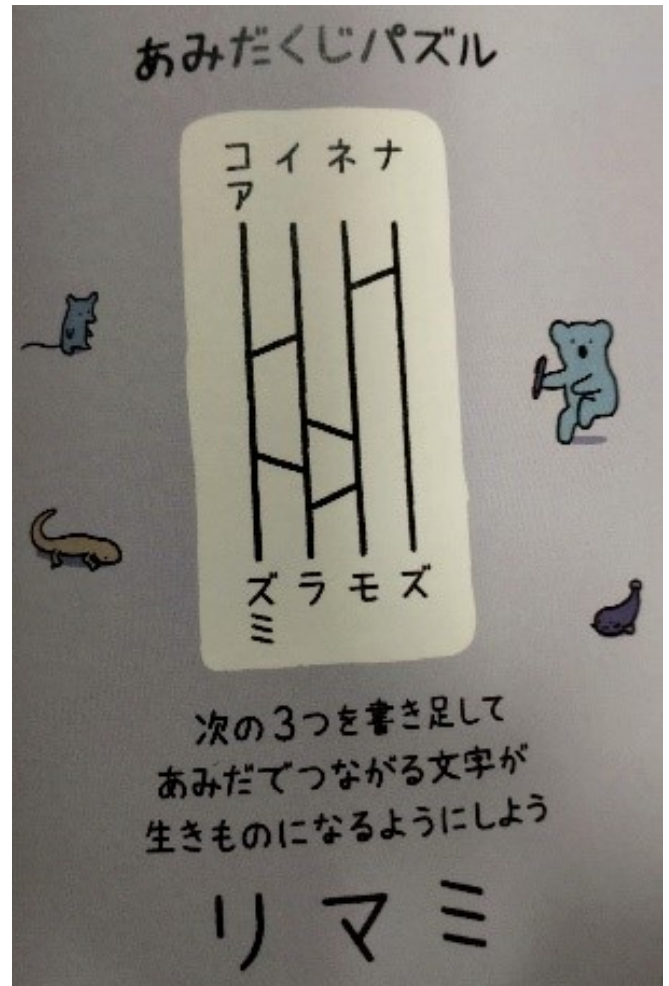 あみだくじパズル
コ イ ネ ナ
ア
ズ ラ モ ズ
ミ
次の3つを書き足して
あみだでつながる文字が
生きものになるようにしよう
リ マ ミ